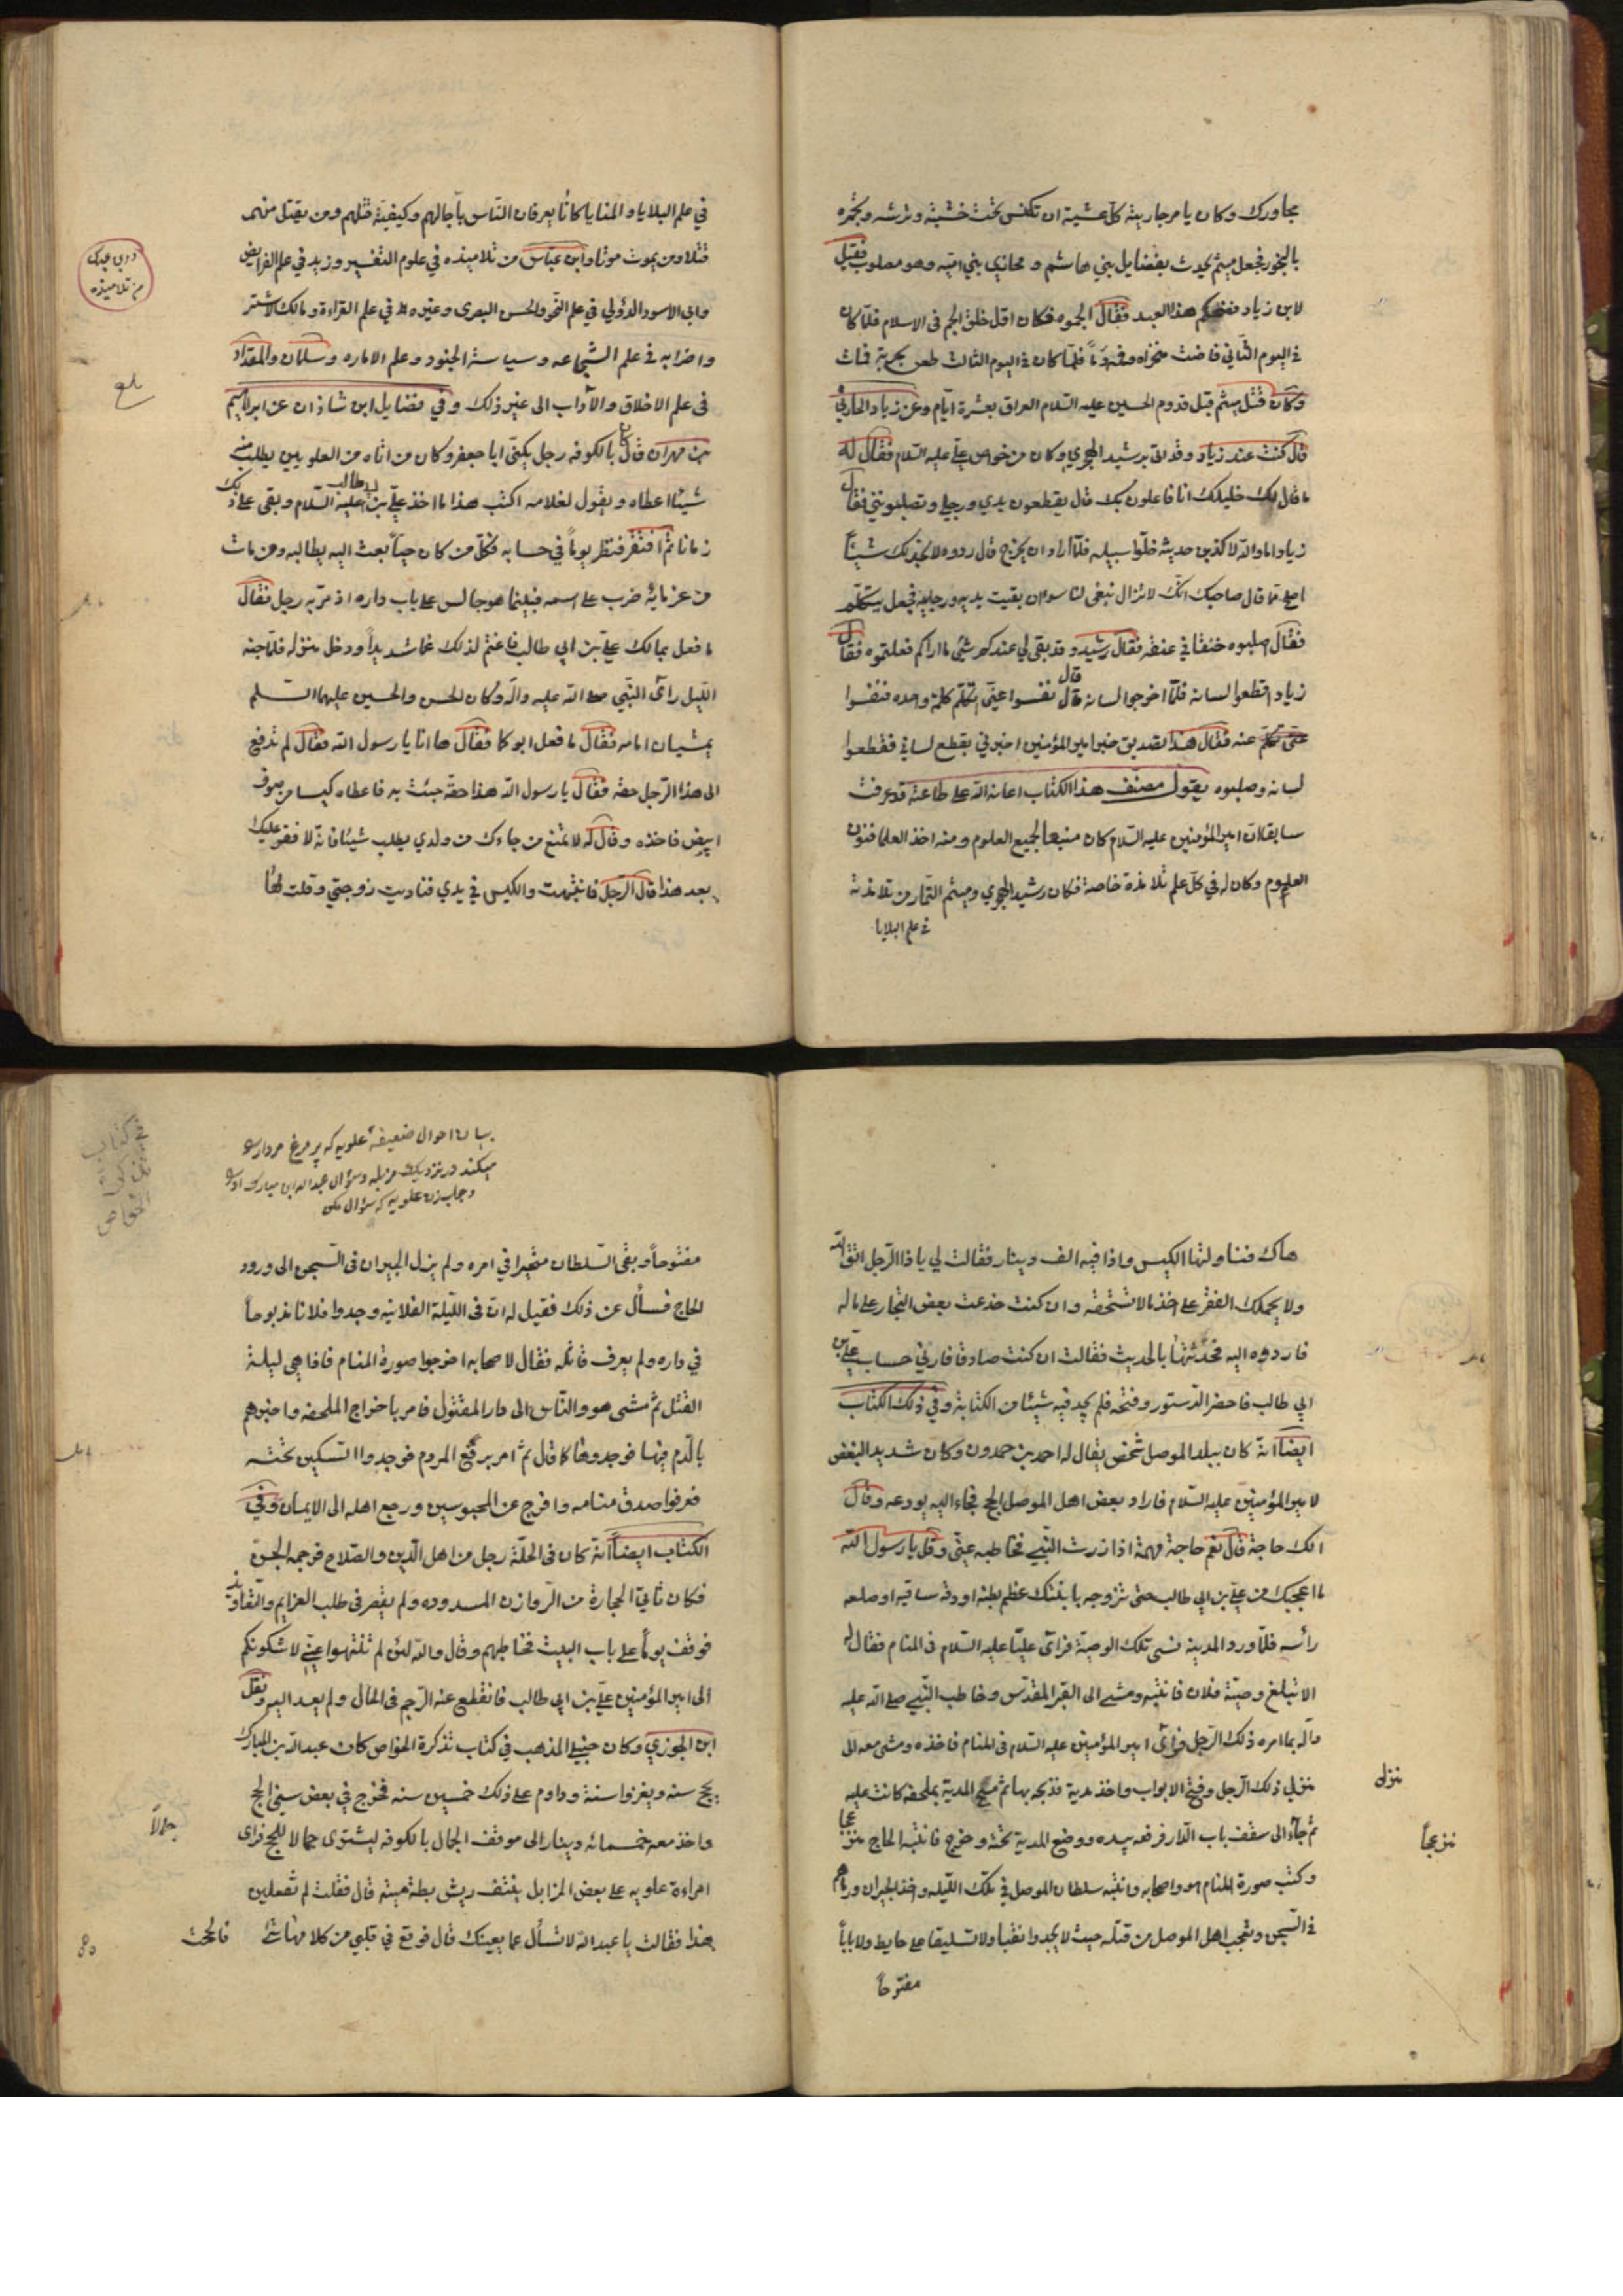 مجاورك وكان يامر جاريته كل عشية ان تكنس تحت خشبته وترشه وتجمره
بالبخور فجعل ميثم يحدث بفضايل بني هاشم و مخازي بني اميه وهو مصلوب فقيل
لابن زياد فضحكم هذا العبد فقال الجموه فكان اول خلق الجم في الاسلام فلما كان
في اليوم الثاني فاضت منخراه وفمه دماً فلما كان في اليوم الثالث طعن بحربة فمات
وكان قتل ميثم قبل قدوم الحسين عليه السلام العراق بعشرة ايام وعن زياد الحارثي
قال كنت عند زياد وقد اتى برشيد الهجري وكان من خواص علي عليه السلام فقال له
ما قال لك خليلك انا فاعلون بك قال يقطعون يدي ورجلي وتصلبونني فقال
زياد اما والله لاكذبن حديثه خلوا سبيله فلما اراد ان يخرج قال ردوه لا نجد لك شيئاً
اصلح مما قال صاحبك انك لا تزال تبغي لنا سوء ان بقيت يديه ورجليه فجعل يتكلم
فقال اصلبوه خنقا في عنقه فقال رشيد و قد بقى لي عندكم شئ ما اراكم فعلتموه فقال
زياد اقطعوا لسانه فلما اخرجوا لسانه قال نفسوا عني اتكلم كلمة واحده فنفسوا
عنه فقال هذا تصديق خبر امير المؤمنين اخبرني بقطع لساني فقطعوا
لسانه وصلبوه يقول مصنف هذا الكتاب اعانه الله على طاعته قد عرفت
سابقا ان امير المؤمنين عليه السلام كان منبعا لجميع العلوم و منه اخذ العلما فنون
العلوم وكان له في كل علم تلامذة خاصة فكان رشيد الهجري وميثم التمار من تلامذته
في علم البلايا
في علم البلايا و المنايا كانا يعرفان الناس باجالهم وكيفية قتلهم ومن يقتل منهم
قتلا ومن يموت موتا وابن عباس من تلاميذه في علوم التفسير وزيد في علم الفرايض
وابي الاسود الدؤلي في علم النحو والحسن البصرى وغيره في علم القراءة ومالك الاشتر
من تلاميذه
واضرابه في علم الشجاعه وسياسة الجنود وعلم الاماره وسلمان والمقداد
في علم الاخلاق والآداب الى غير ذلك وفي فضايل ابن شاذان عن ابراهيم
بن مهران قال بالكوفه رجل يكنى ابا جعفر وكان من اتاه من العلويين يطلب منه
شيئا اعطاه ويقول لغلامه اكتب هذا ما اخذ علي بن ابي طالب عليه السلام وبقى على ذلك
زمانا ثم افتقر فنظر يوماً في حسابه فكل من كان حياً بعث اليه يطالبه ومن مات
من غرمائه ضرب على اسمه فبينما هو جالس على باب داره اذ مر به رجل فقال
ما فعل بمالك علي بن ابي طالب فاغتم لذلك غما شديداً ودخل منزله فلما جنه
الليل رأى النبي صلى الله عليه واله وكان الحسن والحسين عليهما السلم
يمشيان امامه فقال ما فعل ابوكما فقال ها انا يا رسول الله فقال لم تدفع
الى هذا الرجل حقه فقال يا رسول الله هذا حقه جئت به فاعطاه كيسا من صوف
ابيض فاخذه وقال له لا تمنع من جاءك من ولدي يطلب شيئا فانه لا فقر عليك
بعد هذا قال الرجل فانتبهت والكيس في يدي فناديت زوجتي وقلت لها
هاك فناولتها الكيس واذا فيه الف دينار فقالت لي يا ذا الرجل اتق الله
ولا يحملك الفقر على اخذ ما لا تستحقه وان كنت خدعت بعض التجار على ماله
فاردده اليه فحدثتها بالحديث فقالت ان كنت صادقا فارني حساب علي بن
ابي طالب فاحضر الدستور وفتحه فلم يجد فيه شيئا من الكتابة وفي ذلك الكتاب
ايضاً انه كان ببلد الموصل شخص يقال له احمد بن حمدون وكان شديد البغض
لامير المؤمنين عليه السلام فاراد بعض اهل الموصل الحج فجاء اليه يودعه وقال
الك حاجة قال نعم حاجة مهمة اذا زرت النبي فخاطبه عني وقل يا رسول الله
ما اعجبك من علي بن ابي طالب حتى تزوجه بابنتك عظم بطنه او دقة ساقيه او صلعة
رأسه فلما ورد المدينه نسى تلك الوصية فرأى عليا عليه السلام في المنام فقال له
الا تبلغ وصية فلان فانتبه ومشى الى القبر المقدس وخاطب النبي صلى الله عليه
وآله بما امره ذلك الرجل فرأى امير المؤمنين عليه السلام في المنام فاخذه ومشى معه الى
منزل ذلك الرجل وفتح الابواب واخذ مدية فذبحه بها ثم مسح المدية بملحفه كانت عليه
منزل
ثم جآء الى سقف باب الدار فرفعه بيده ووضع المدية تحته وخرج فانتبه الحاج منزعجا
منزعجاً
وكتب صورة المنام هو واصحابه وانتبه سلطان الموصل في تلك الليله واخذ الجيران ورماهم
في السجن وتعجب اهل الموصل من قتله حيث لا يجدوا نقبا ولا تسليقا على حايط ولا باباً
مفتوحاً
بيان احوال ضعيفۀ علويه كه پر مرغ مردارى
ميكند در نزديك مزبله وسؤال عبدالله ابن مبارك از وى
وجواب زن علويه كه سؤال مكن
مفتوحاً وبقى السلطان متحيرا في امره ولم يزل الجيران في السجن الى ورود
الحاج فسأل عن ذلك فقيل له ان في الليلة الفلانيه وجدوا فلانا مذبوحاً
في داره ولم يعرف قاتله فقال لاصحابه اخرجوا صورة المنام فاذا هي ليلة
القتل ثم مشى هو والناس الى دار المقتول فامر باخراج الملحفه واخبرهم
بالدم فيها فوجدوها كما قال ثم امر برفع المردم فوجدوا السكين تحته
فعرفوا صدق منامه وافرج عن المحبوسين ورجع اهله الى الايمان وفي
الكتاب ايضاً انه كان في الحلة رجل من اهل الدين والصلاح فرجمه الجن
فكان تاتي الحجارة من الروازن المسدوده ولم يقصر في طلب العزايم والتعاويذ
فوقف يوماً على باب البيت فخاطبهم وقال والله لئن لم تنتهوا عني لاشكونكم
الى امير المؤمنين علي بن ابي طالب فانقطع عنه الرجم في الحال ولم يعد اليه ونقل
ابن الجوزي وكان حنبلي المذهب في كتاب تذكرة الخواص كان عبدالله بن المبارك
يحج سنه ويغزوا سنة وداوم على ذلك خمسين سنه فخرج في بعض سني الحج
واخذ معه خمسمائه دينار الى موقف الجمال بالكوفه ليشترى جمالا للحج فرأى
جمالاً
امراءة علويه على بعض المزابل ينتف ريش بطة ميتة قال فقلت لم تفعلين
هذا فقالت يا عبد الله لا تسأل عما يعينك قال فوقع في قلبي من كلامها شئ
فالححت